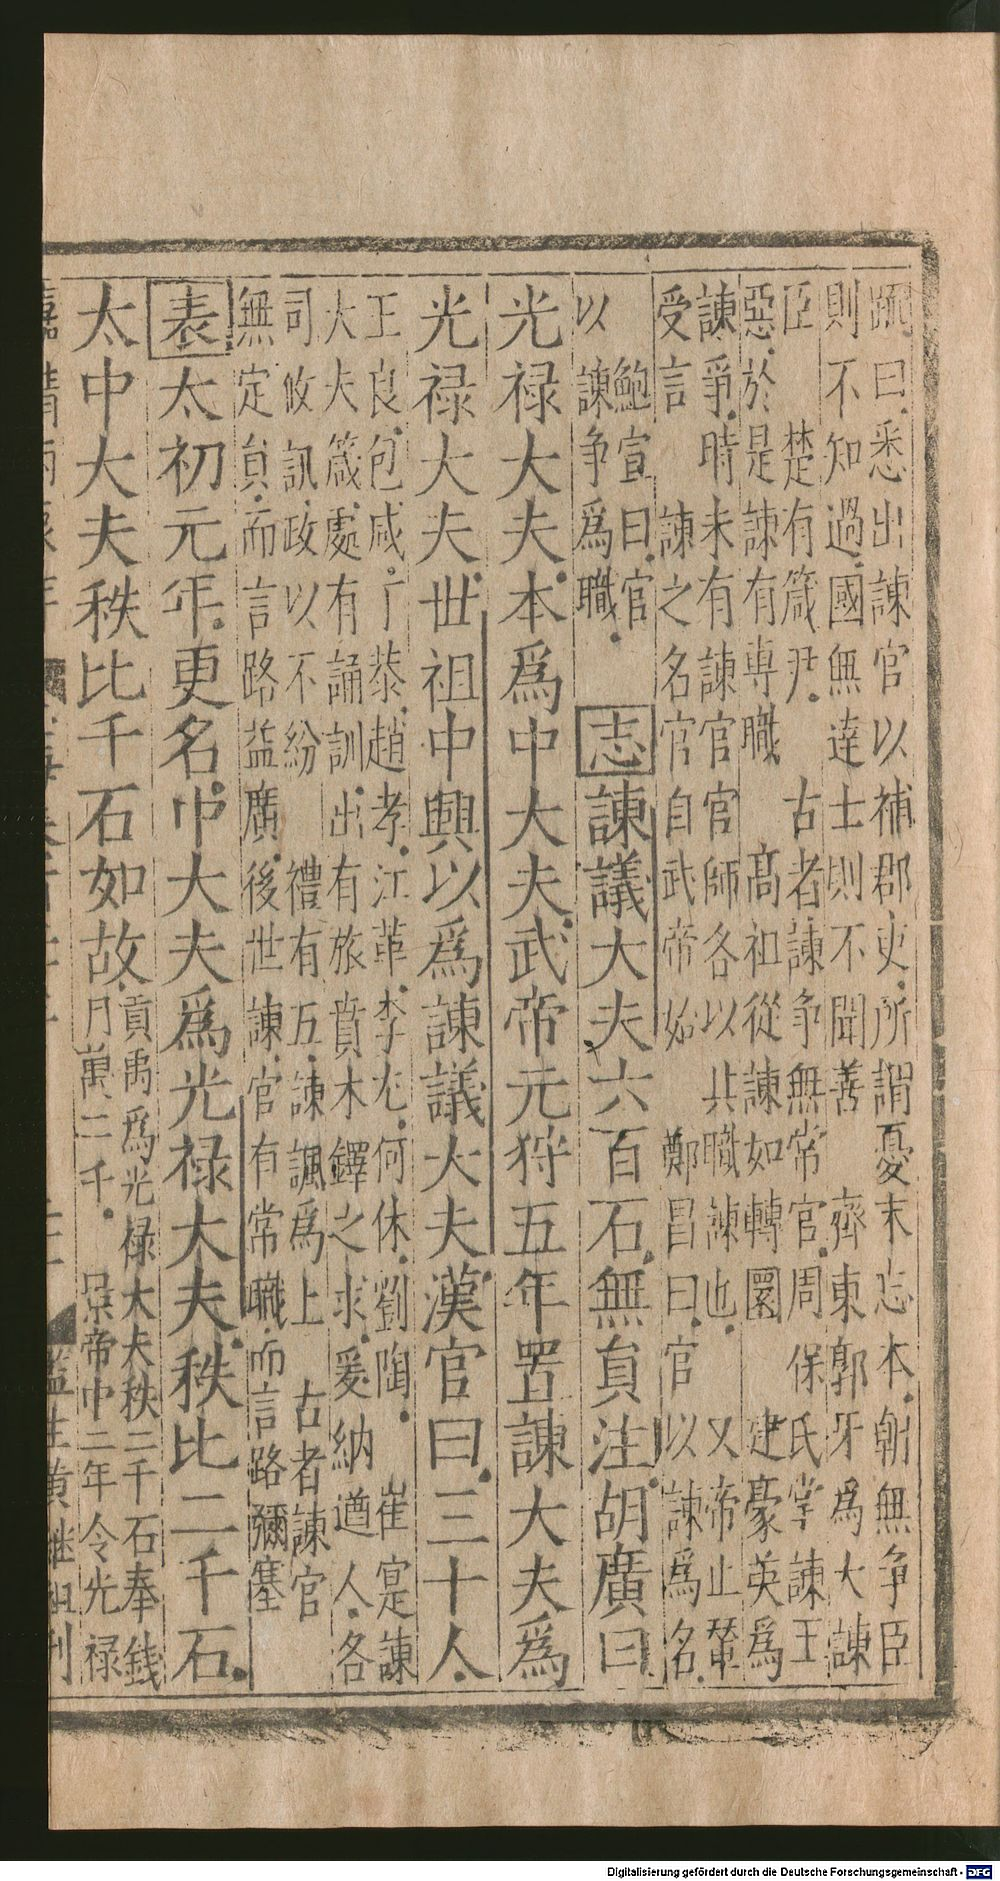 疏曰悉出諫官以補郡吏所謂憂末忘本朝無争臣
則不知過國無達士則不聞善　齊東郭牙爲大諫
臣　楚有箴尹　古者諫争無常官周保氏掌諫王
惡於是諫有專職　高祖從諫如轉圜　建豪英爲
諫爭時未有諫官官師各以其職諫也　又帝止輦
受言　諫之名官自武帝始　鄭昌曰官以諫爲名
鮑宣曰官
以諫争爲職
志諫議大夫六百石無員注胡廣曰
光禄大夫本爲中大夫武帝元狩五年置諫大夫爲
光禄大夫世祖中興以爲諫議大夫漢官曰三十人
王良包咸丁恭趙孝江革李尤何休劉陶　崔寔諫
大夫箴處有誦訓出有旅賁木鐸之求爰納遒人各
司攸訊政以不紛　禮有五諫諷爲上　古者諫官
無定員而言路益廣後世諫官有常職而言路彌塞
表太初元年更名中大夫爲光禄大夫秩比二千石
太中大夫秩比千石如故
貢禹爲光禄大夫秩二千石奉錢
月萬二千　景帝中二年令光禄
監生黄繼祖刊
Digitalisierung gefördert durch die Deutsche Forschungsgemeinschaft - DFG